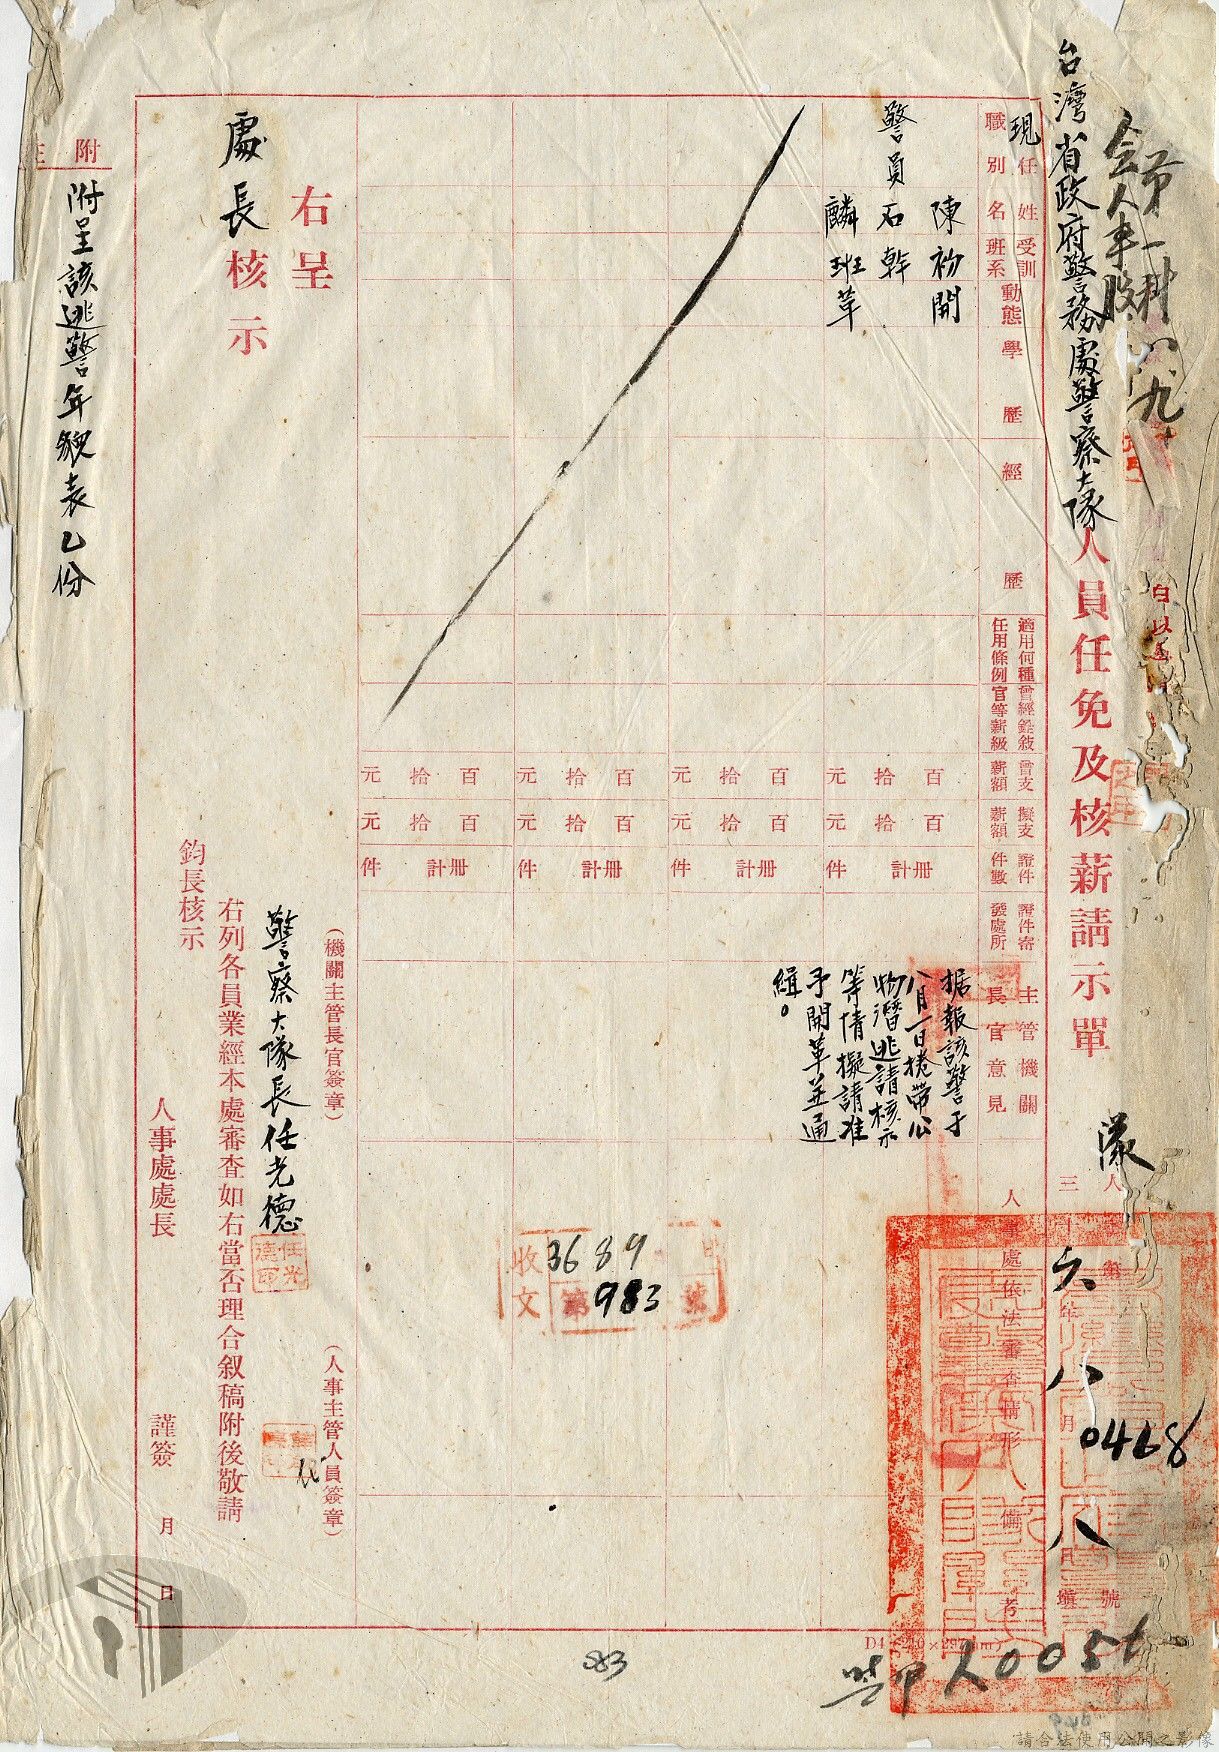 台灣省政府警務處警察大隊人員任免及核薪請示單
隊人
三十六年八月八日填
第 號
0468
現任
職別
姓名
受訓班系
動態
學歷
經歷
適用何種任用條例
曾經銓敘官等薪級
曾支薪額
擬支薪額
證件件數
證件審發處所
主管機關長官意見
人事處依法審查情形
備考
警員
陳礽開
石幹
麟班草
百拾元
百拾元
冊計件
百拾元
百拾元
冊計件
百拾元
百拾元
冊計件
百拾元
百拾元
冊計件
据報該警于
八月一日捲帶公
物潛逃請核示
等情擬請准
予開革並通
緝。
收文
3689
第983號
右呈
處長核示
(機關主管長官簽章)
警察大隊長任光德
任光德印
(人事主管人員簽章)
右列各員業經本處審查如右當否理合叙稿附後敬請
鈞長核示
人事處處長
謹簽
月
日
附註
附呈該逃警年貌表乙份
983
請合法使用公開之影像